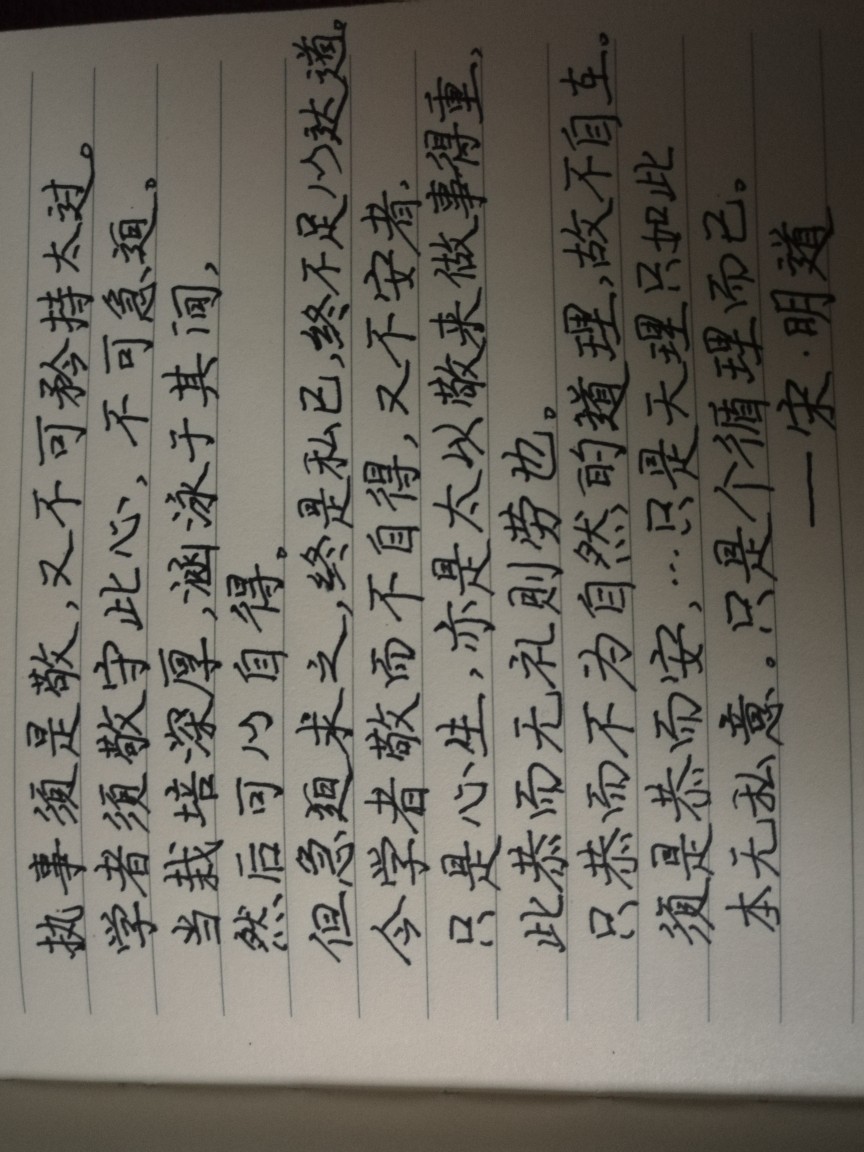 执事须是敬,又不可矜持太过。
学者须敬守此心,不可急迫。
当栽培深厚,涵泳于其间,
然后可以自得。
但急迫求之,终是私己,终不足以达道。
今学者敬而不自得,又不安者,
只是心生,亦是太以敬来做事得重,
此恭而无礼则劳也。
只恭而不为自然的道理,故不自在。
须是恭而安,…只是天理只如此
本无私意。只是个循理而已。
—宋·明道